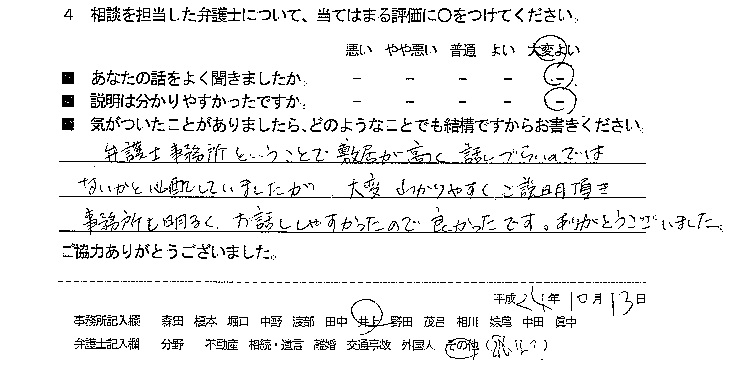 4 相談を担当した弁護士について、当てはまる評価に〇をつけてください。
悪い やや悪い 普通 よい 大変よい
■ あなたの話をよく聞きましたか。 － － － － －
■ 説明は分かりやすかったですか。 － － － － －
■ 気がついたことがありましたら、どのようなことでも結構ですからお書きください。
弁護士事務所ということで敷居が高く話しづらいのでは
ないかと心配していましたが 大変わかりやすくご説明頂き
事務所も明るく、お話ししやすかったので良かったです。ありがとうございました。
ご協力ありがとうございました。
平成 年10月13日
事務所記入欄 森田 榎本 堀口 中野 渡部 田中 井上 野田 茂呂 相川 中田
弁護士記入欄 分野 不動産 相続・遺言 離婚 交通事故 外国人 その他